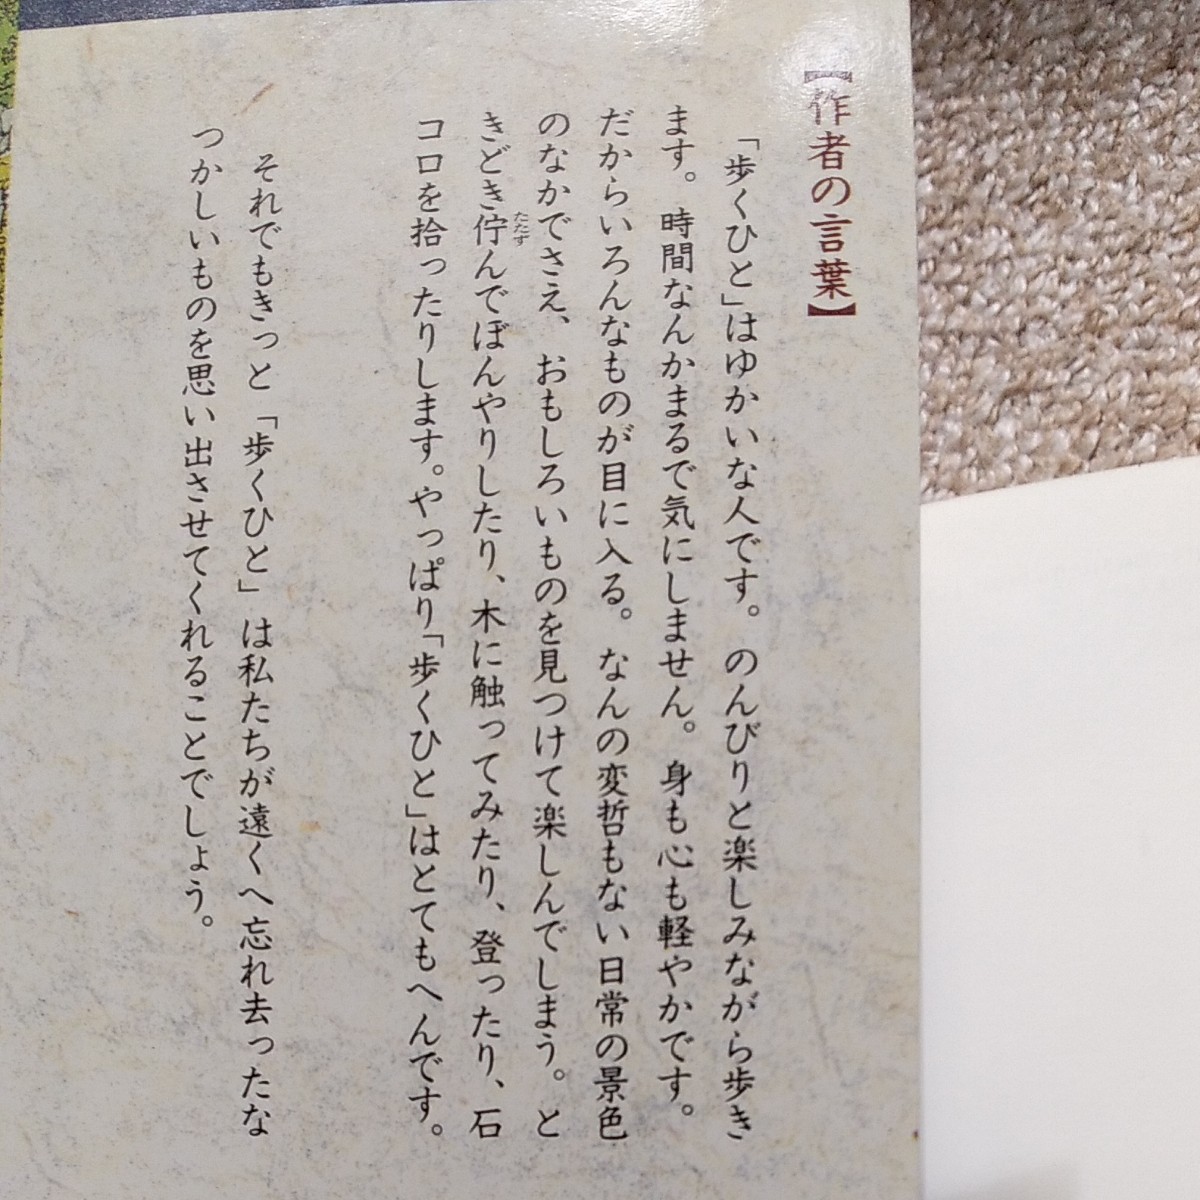 【作者の言葉】
「歩くひと」はゆかいな人です。のんびりと楽しみながら歩き
ます。時間なんかまるで気にしません。身も心も軽やかです。
だからいろんなものが目に入る。なんの変哲もない日常の景色
のなかでさえ、おもしろいものを見つけて楽しんでしまう。と
きどき佇んでぼんやりしたり、木に触ってみたり、登ったり、石
たたず
コロを拾ったりします。やっぱり「歩くひと」はとてもへんです。
それでもきっと「歩くひと」は私たちが遠くへ忘れ去ったな
つかしいものを思い出させてくれることでしょう。